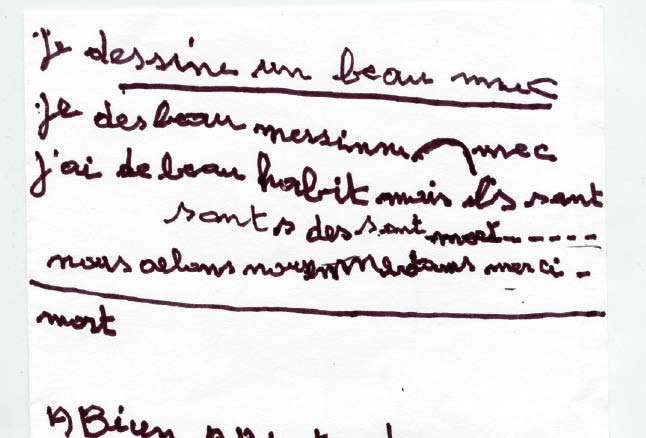 je dessine un beau mec
je des beau messinne mec
j'ai de beau habit mais ils sont
sont s des sont mort-----
nous allons nous merci-
mort
A) Bien